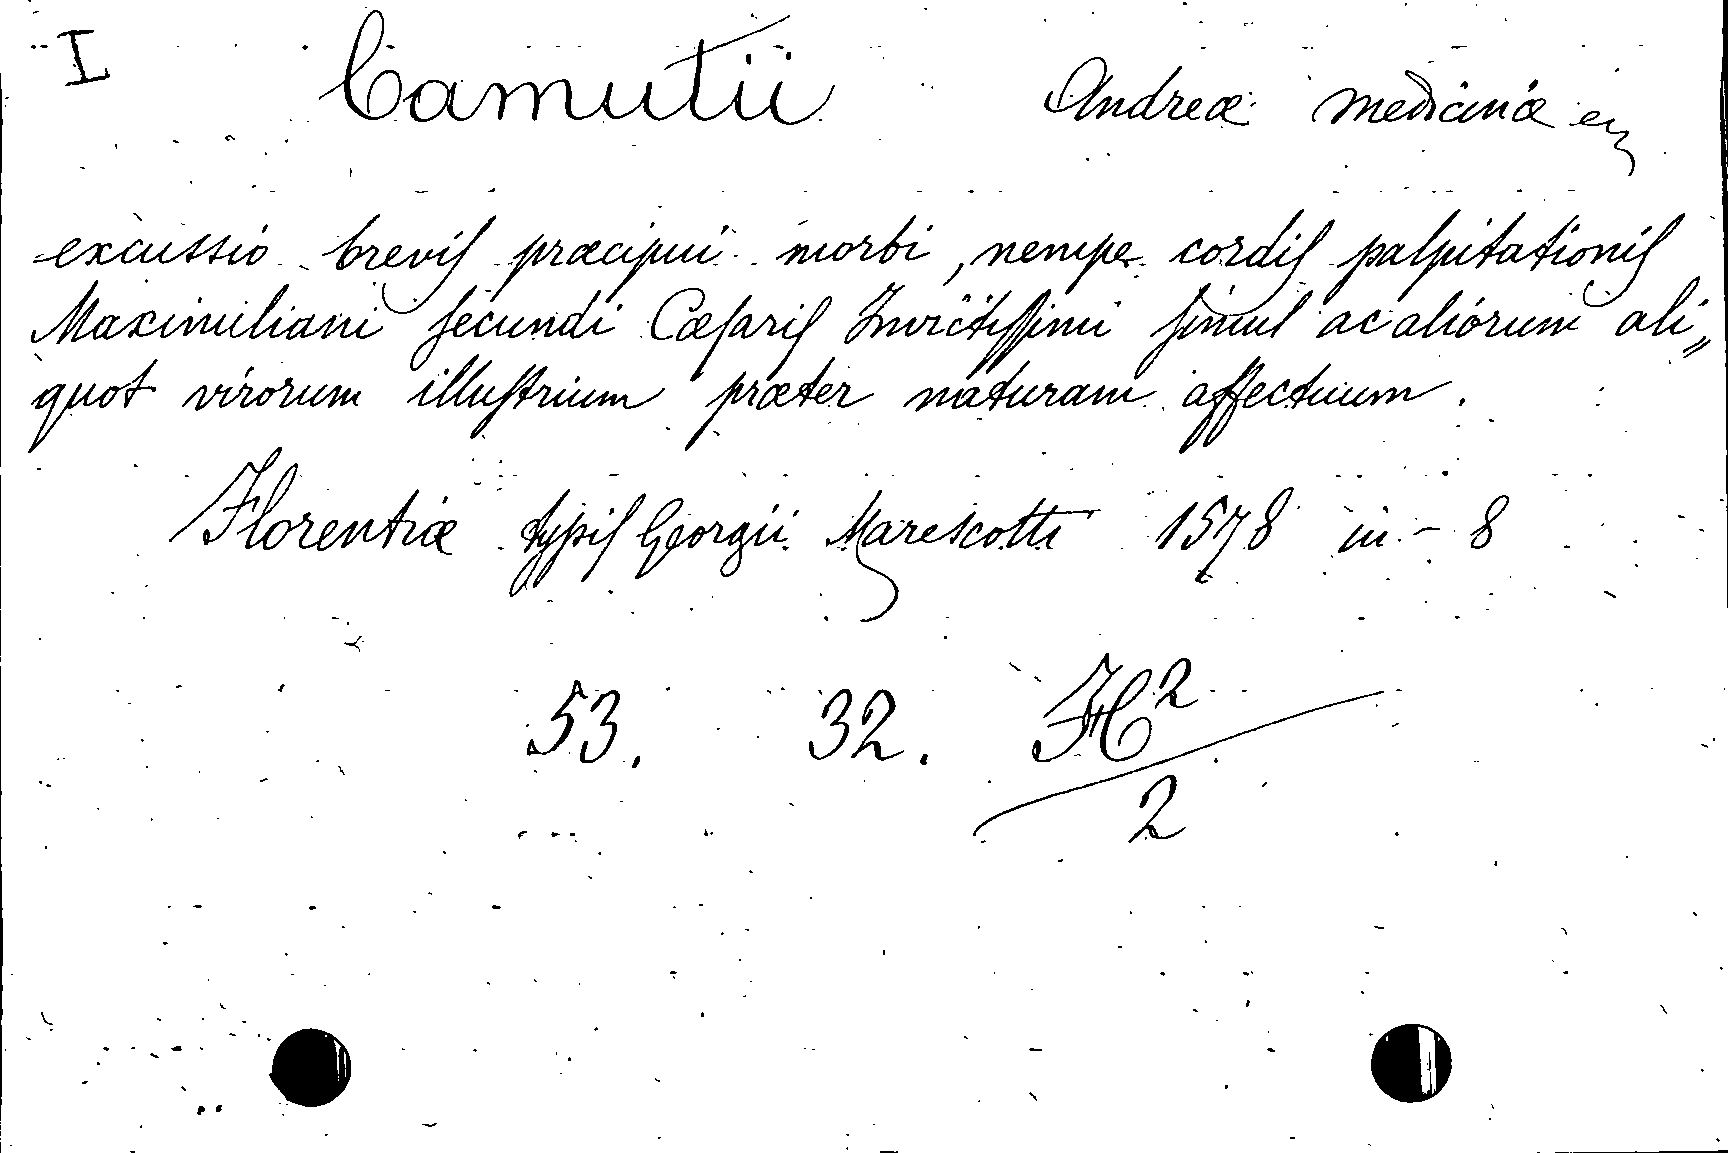 I Camutii Andreæ medicinæ
excussio brevis præcipui morbi, nempe cordis palpitationis
Maximiliani secundi Cæsaris Invictissimi simul ac aliorum ali„
quot virorum illustrium præter naturam affectuum.
Florentiæ typis Georgii Marescotti 1578 in-8
53. 32. H²
2